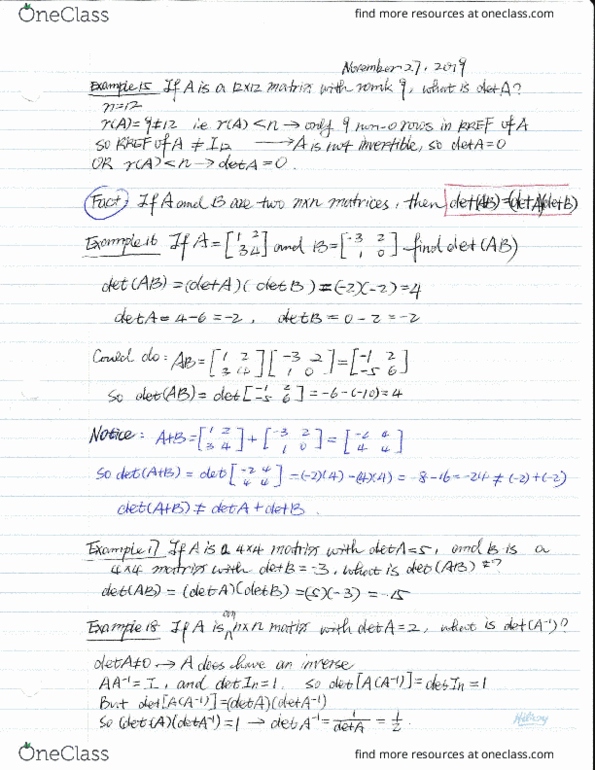 OneClass
find more resources at oneclass.com
November 27, 2019
Example 15 If A is a 12x12 matrix with rank 9, what is det A?
n=12
r(A)=9≠12 i.e r(A)<n → only 9 non-0 rows in RREF of A
so RREF of A ≠ I12 → A is not invertible, so det A=0
OR r(A)<n → det A=0.
Fact: If A and B are two nxn matrices, then det(AB)=(det A)(det B)
Example 16 If A=[1 2 3 4] and B=[-3 2 1 0] find det(AB)
det(AB)=(det A)(det B)=(-2)(-2)=4
det A=4-6=-2, det B=0-2=-2
Could do: AB=[1 2 3 4][-3 2 1 0]=[-1 2 -5 6]
So det(AB)=det[-1 2 -5 6]=-6-(-10)=4
Notice: A+B=[1 2 3 4]+[-3 2 1 0]=[4 4 4]
So det(A+B)=det[-2 4 4 4]=(-2)(4)-(4)(4)=-8-16=-24≠(-2)+(-2)
det(A+B)≠det A+det B.
Example 17 If A is a 4x4 matrix with det A=5, and B is a
4x4 matrix with det B=-3, what is det(AB)?
det(AB)=(det A)(det B)=(5)(-3)=-15
Example 18 If A is an nxn matrix with det A=2, what is det(A⁻¹)?
det A≠0 → A does have an inverse
AA⁻¹=I, and det In=1. so det[A(A⁻¹)]=det In=1
But det[A(A⁻¹)]=(det A)(det A⁻¹)
So (det(A)(det A⁻¹)=1 → det A⁻¹=1/det A=1/2.
OneClass
find more resources at oneclass.com